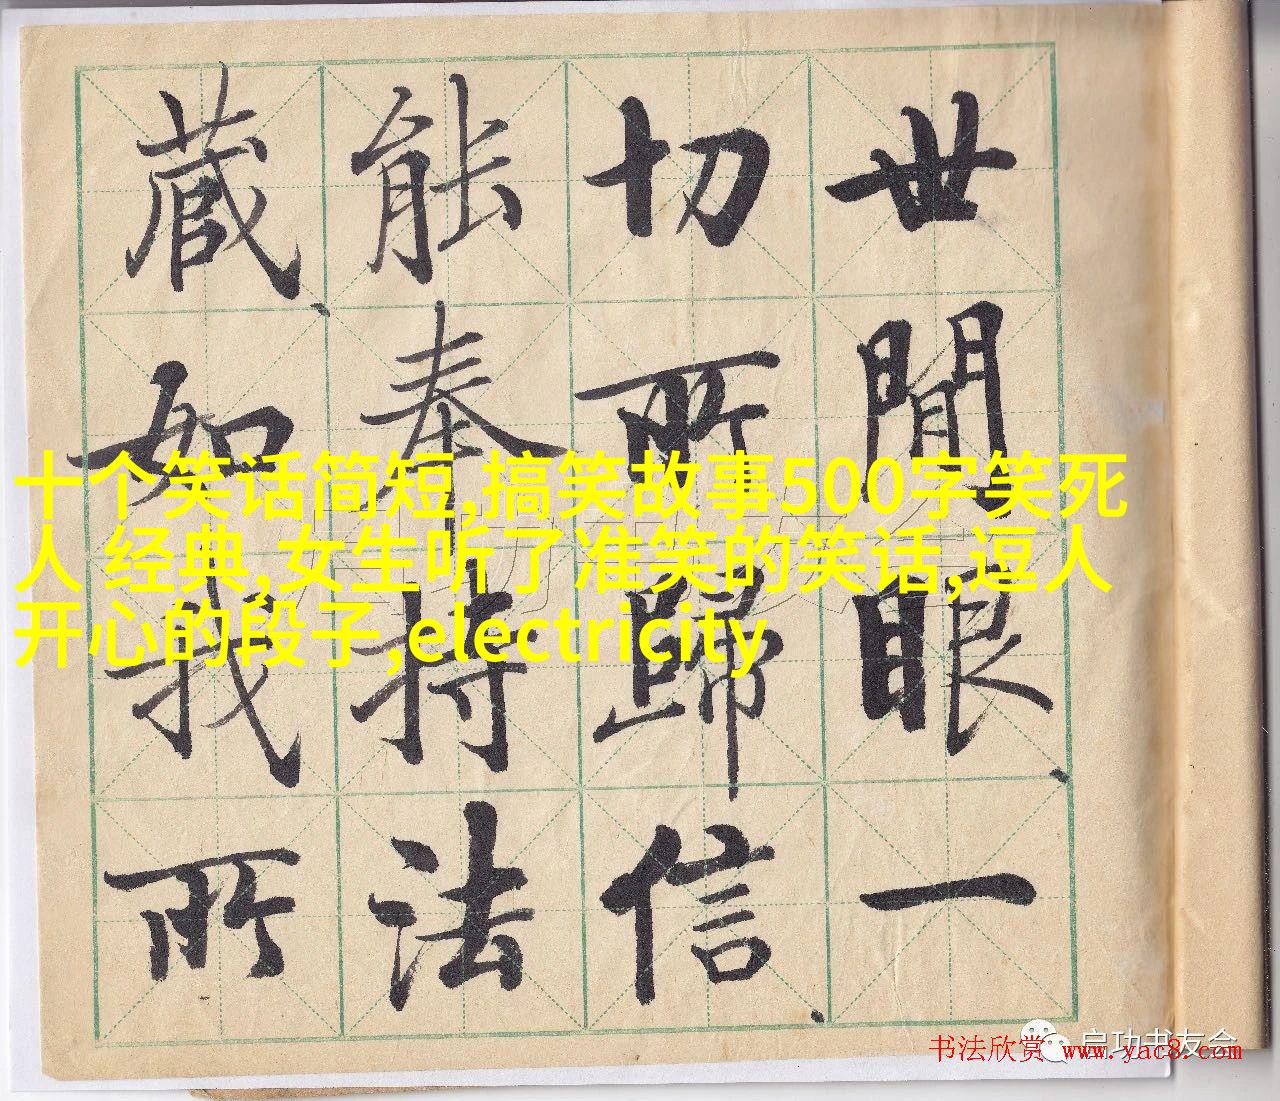 世間眼一
切所歸信
能奉持法
藏如我所
十个笑话简短,搞笑故事500字笑死
人 经典,女生听了准笑的笑话,逗人
开心的段子,electricity
启功书友会
书法欣赏 www.yac8.com